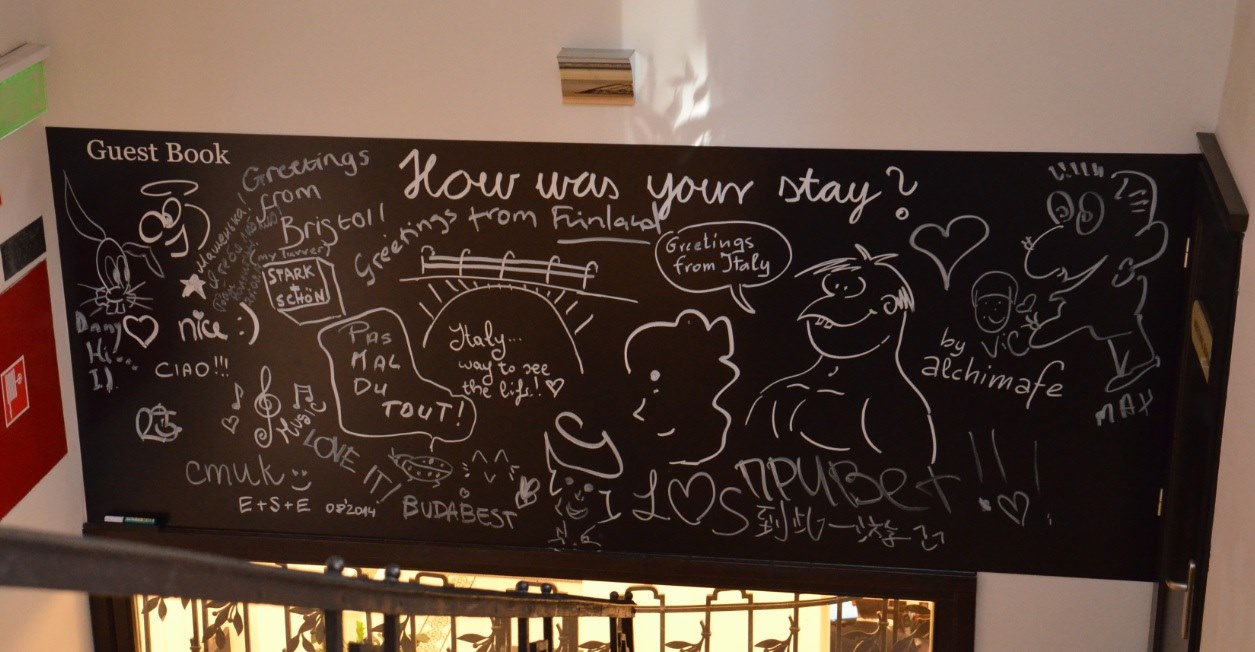 Guest Book
How was your stay?
Greetings
from
Bristol!
Greetings from Finland
Greetings
from Italy
STARK
+
SCHÖN
nice :)
CIAO!!!
Hi...
PAS
MAL
DU
TOUT!
Italy...
way to see
the life!! ♡
by
alchimafe
Vic
MAX
MUSIC
LOVE IT!
cmuk
E+S+E 08'2014
BUDABEST
L♡S
привет !!!
到此一